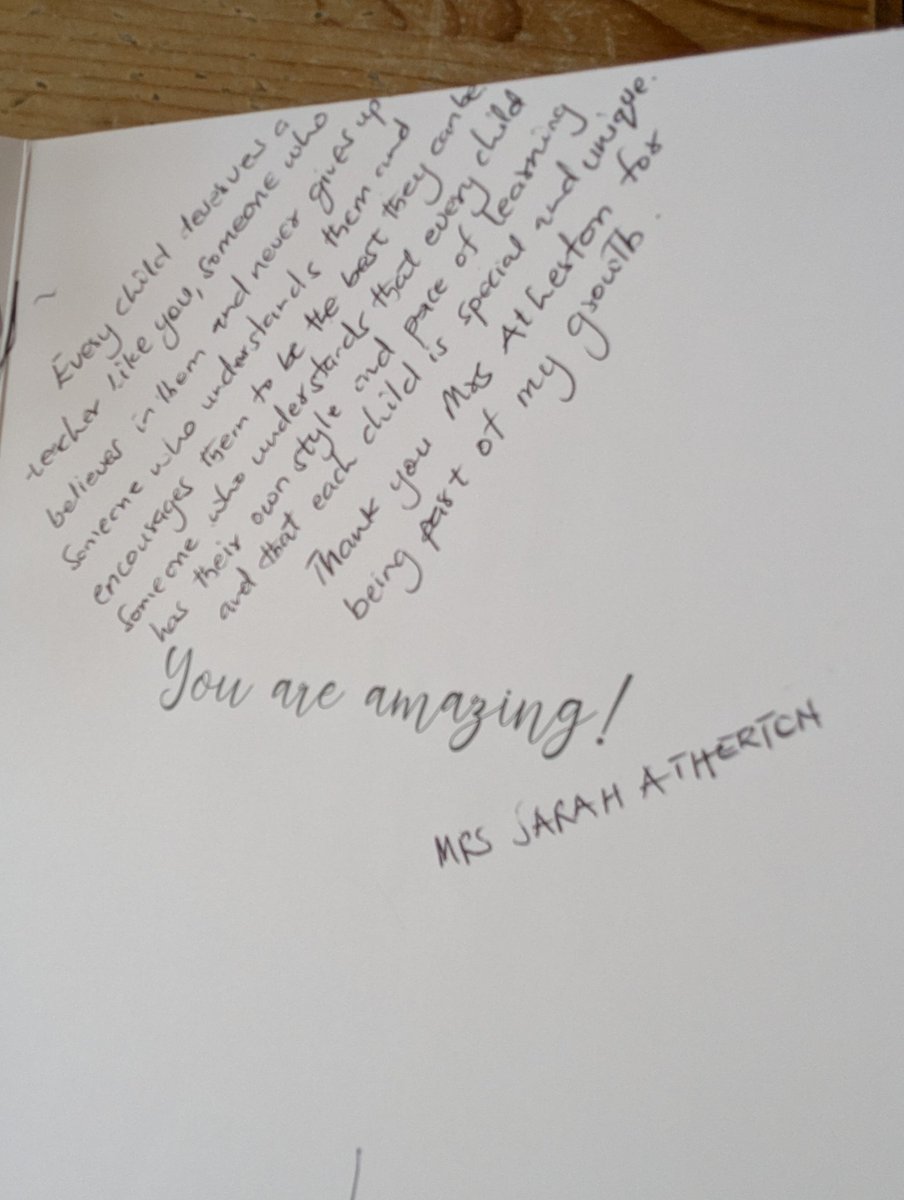 Every child deserves a
teacher like you, someone who
believes in them and never gives up
Someone who understands them and
encourages them to be the best they can be
Someone who understands that every child
has their own style and pace of learning
and that each child is special and unique.
Thank you Mrs Atherton for
being part of my growth.
You are amazing!
MRS SARAH ATHERTON